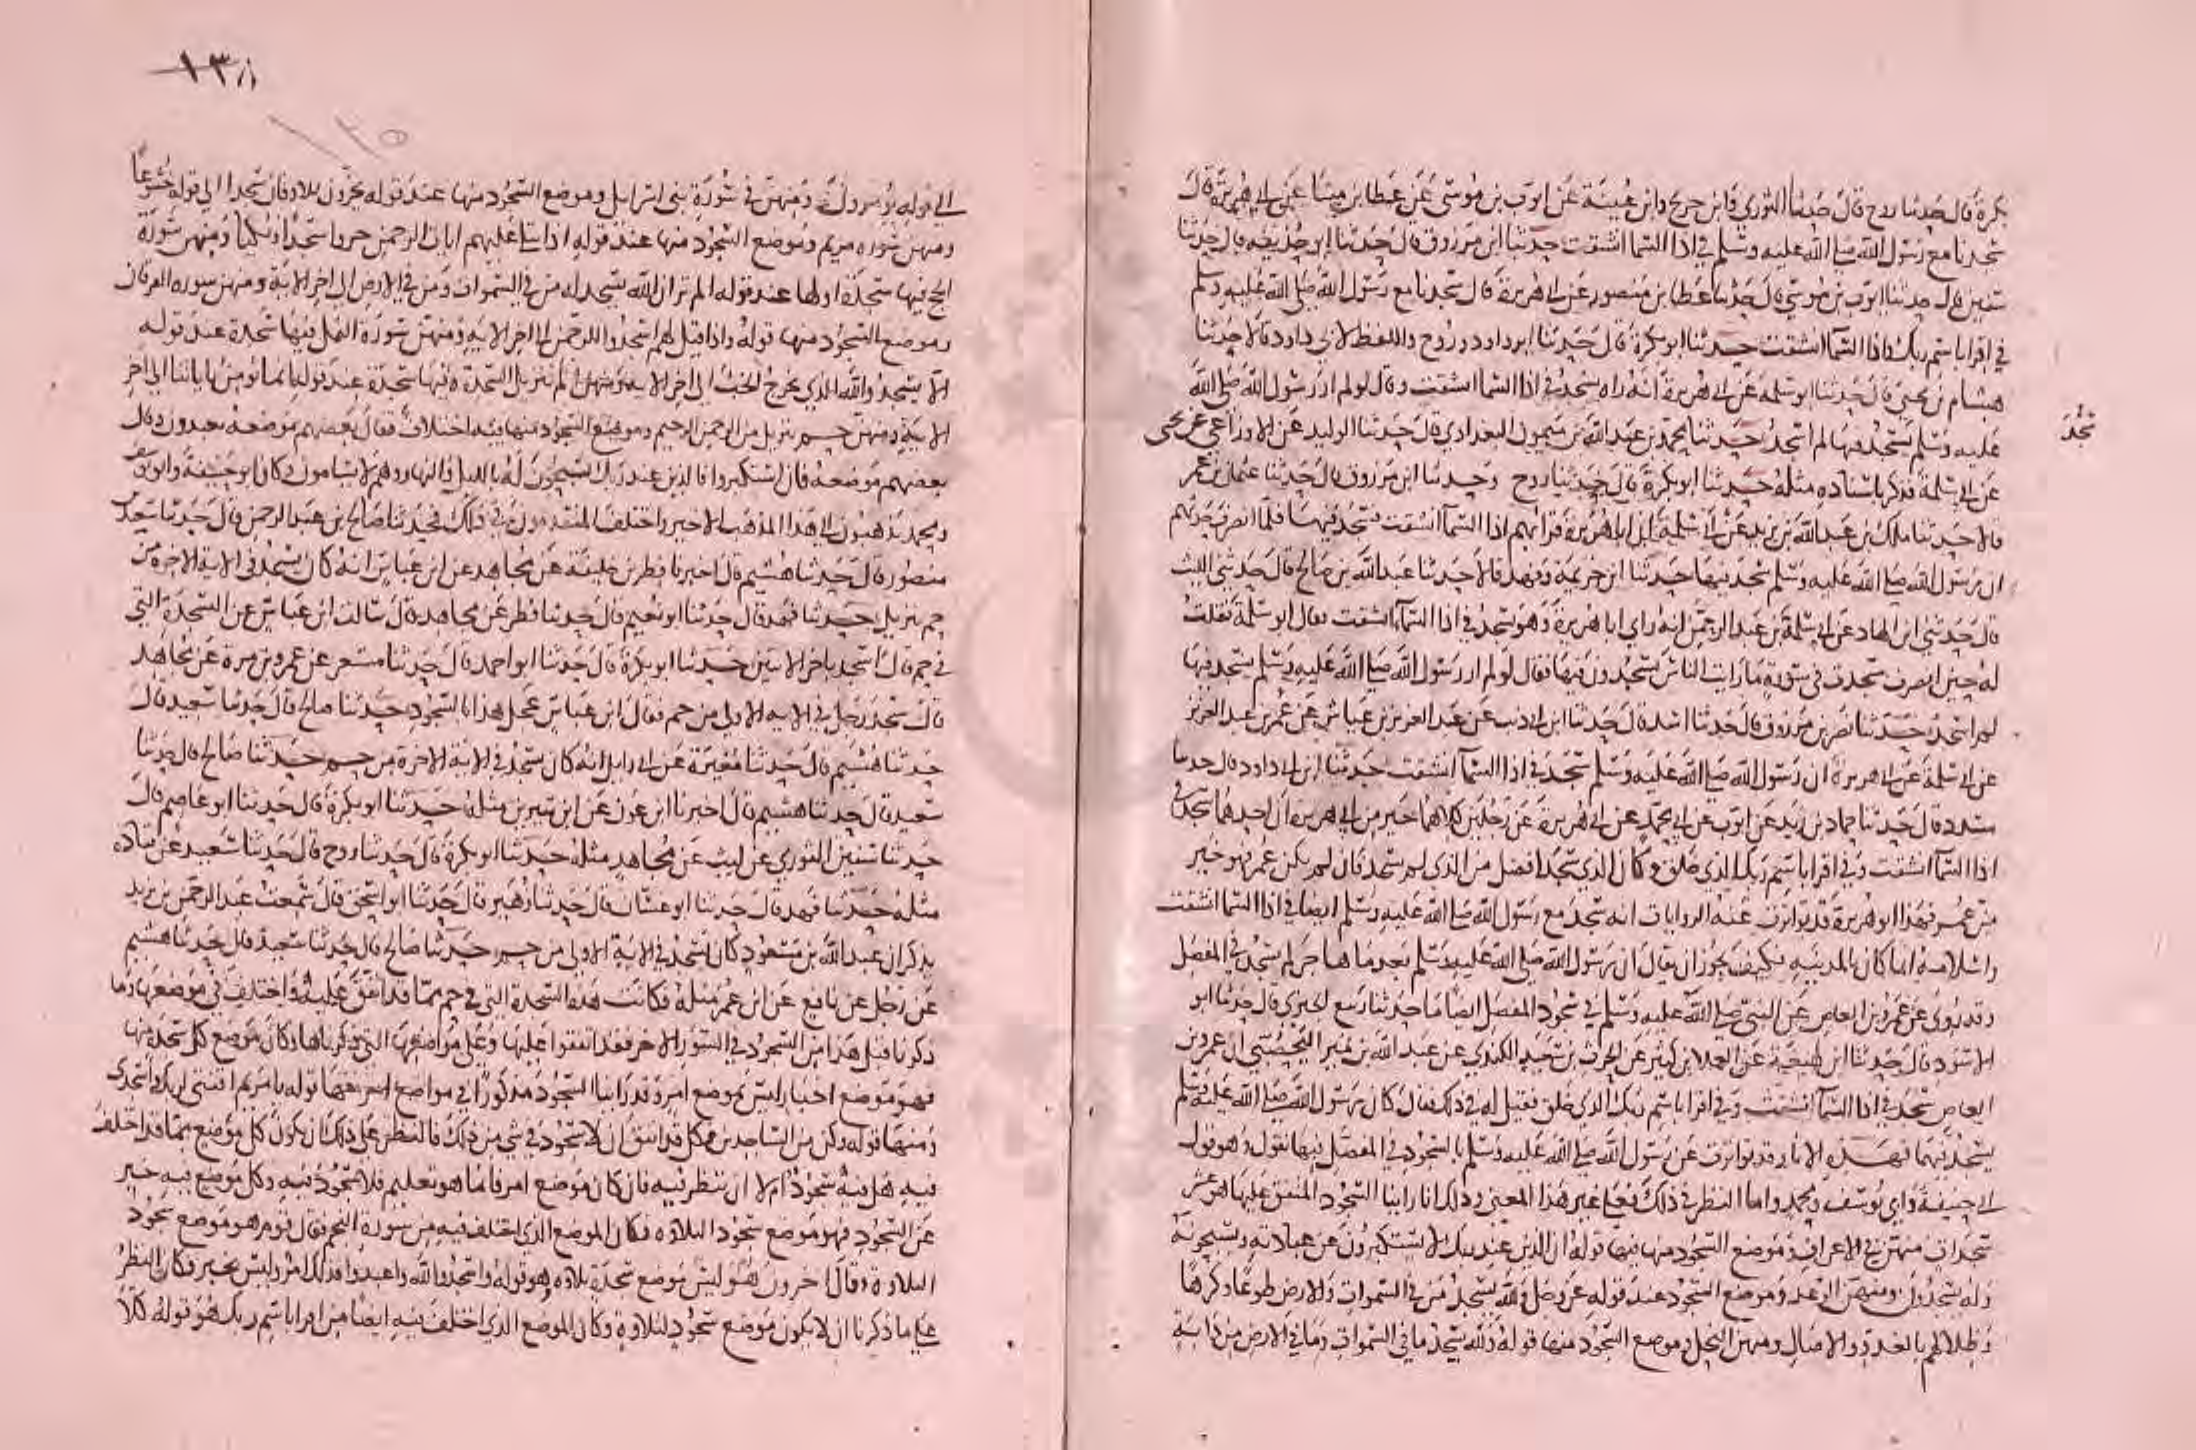 بكرة قال حدثنا روح قال حدثنا الثوري وابن جريج وابن عيينة عن ايوب بن موسى عن عطا بن مينا عن ابي هريرة قال
سجدنا مع رسول الله صلى الله عليه وسلم في اذا السما انشقت حدثنا ابن مرزوق قال حدثنا ابو حذيفة قال حدثنا
سفين قال حدثنا ايوب بن موسى قال حدثنا عطا بن منصور عن ابي هريرة قال سجدنا مع رسول الله صلى الله عليه وسلم
في اقرا باسم ربك واذا السما انشقت حدثنا ابو بكرة قال حدثنا ابو داود وروح واللفظ لابي داود قالا حدثنا
هشام عن يحيى قال حدثنا ابو سلمة عن ابي هريرة انه راه يسجد في اذا السما انشقت وقال لو لم ار رسول الله صلى الله
عليه وسلم يسجد فيها لم اسجد حدثنا محمد بن عبد الله بن ميمون البغدادي قال حدثنا الوليد عن الاوزاعي عن يحيى
عن ابي سلمة فذكر باسناده مثله حدثنا ابو بكرة قال حدثنا روح وحدثنا ابن مرزوق قال حدثنا عثمان بن عمر
قالا حدثنا ملك بن عبد الله بن يزيد عن ابي سلمة ان ابا هريرة قرا بهم اذا السما انشقت فسجد فيها فلما انصرف حدثهم
ان رسول الله صلى الله عليه وسلم سجد فيها حدثنا ابن خزيمة وفهد قالا حدثنا عبد الله بن صالح قال حدثني الليث
قال حدثني ابن الهاد عن ابي سلمة بن عبد الرحمن انه راى ابا هريرة وهو يسجد في اذا السما انشقت فقال ابو سلمة فقلت
له حين انصرف سجدت في سورة ما رايت الناس يسجدون فيها فقال لو لم ار رسول الله صلى الله عليه وسلم يسجد فيها
لم اسجد حدثنا نصر بن مرزوق قال حدثنا اسد قال حدثنا ابن ابي ذئب عن عبد العزيز بن عياش عن عمر بن عبد العزيز
عن ابي سلمة عن ابي هريرة ان رسول الله صلى الله عليه وسلم سجد في اذا السما انشقت حدثنا ابن ابي داود قال حدثنا
مسدد قال حدثنا حماد بن زيد عن ايوب عن محمد عن ابي هريرة عن رجلين كلاهما خير من ابي هريرة ان احدهما سجد في
اذا السما انشقت وفي اقرا باسم ربك الذي خلق وكان الذي سجد افضل من الذي لم يسجد فان لم يكن عمر فهو خير
من عمر فهذا ابو هريرة قد تواترت عنه الروايات انه سجد مع رسول الله صلى الله عليه وسلم ايضا في اذا السما انشقت
واسلامه انما كان بالمدينة فكيف يجوز ان يقال ان رسول الله صلى الله عليه وسلم بعد ما هاجر لم يسجد في المفصل
وقد روي عن عمرو بن العاص عن النبي صلى الله عليه وسلم في سجود المفصل ايضا ما حدثنا ربيع الجيزي قال حدثنا ابو
الاسود قال حدثنا ابن لهيعة عن العلا بن كثير عن الحرث بن سعيد الكندي عن عبد الله بن منير اليحصبي ان عمرو بن
العاص سجد في اذا السما انشقت وفي اقرا باسم ربك الذي خلق فقيل له في ذلك فقال كان رسول الله صلى الله عليه وسلم
يسجد فيهما فهذه الاثار قد تواترت عن رسول الله صلى الله عليه وسلم بالسجود في المفصل فبها نقول وهو قول
ابي حنيفة وابي يوسف ومحمد واما النظر في ذلك فعلى غير هذا المعنى وذلك انا راينا السجود المتفق عليها هو عشر
سجدات منهن في الاعراف وموضع السجود منها فيها قوله ان الذين عند ربك لا يستكبرون عن عبادته ويسبحونه
وله يسجدون ومنهن الرعد وموضع السجود عند قوله عز وجل ولله يسجد من في السموات والارض طوعا وكرها
وظلالهم بالغدو والاصال ومنهن النحل وموضع السجود منها قوله ولله يسجد ما في السموات وما في الارض من دابة
الى قوله يؤمرون ومنهن في سورة بني اسرايل وموضع السجود منها عند قوله يخرون للاذقان سجدا الى قوله خشوعا
ومنهن سورة مريم وموضع السجود منها عند قوله اذا تتلى عليهم ايات الرحمن خروا سجدا وبكيا ومنهن سورة
الحج فيها سجدة اولها عند قوله الم تر ان الله يسجد له من في السموات ومن في الارض الى اخر الاية ومنهن سورة الفرقان
وموضع السجود منها قوله واذا قيل لهم اسجدوا للرحمن الى اخر الاية ومنهن سورة النمل فيها سجدة عند قوله
الا يسجدوا لله الذي يخرج الخبء الى اخر الاية ومنهن الم تنزيل السجدة فيها سجدة عند قوله انما يؤمن باياتنا الى اخر
الاية ومنهن حم تنزيل من الرحمن الرحيم وموضع السجود منها فيه اختلاف فقال بعضهم موضعه تعبدون وقال
بعضهم موضعه فان استكبروا فالذين عند ربك يسبحون له بالليل والنهار وهم لا يسامون وكان ابو حنيفة وابو يوسف
ومحمد يذهبون الى هذا المذهب الاخير واختلف المتقدمون في ذلك فحدثنا صالح بن عبد الرحمن قال حدثنا سعيد بن
منصور قال حدثنا هشيم قال اخبرنا فطر بن خليفة عن مجاهد عن ابن عباس انه كان يسجد في الاية الاخرة من
حم تنزيل حدثنا فهد قال حدثنا ابو نعيم قال حدثنا فطر عن مجاهد قال سالت ابن عباس عن السجدة التي
في حم قال اسجد باخر الايتين حدثنا ابو بكرة قال حدثنا ابو احمد قال حدثنا مسعر عن عمرو بن مرة عن مجاهد
قال سجد رجل في الاية الاولى من حم فقال ابن عباس عجل هذا بالسجود حدثنا صالح قال حدثنا سعيد قال
حدثنا هشيم قال حدثنا مغيرة عن ابي وايل انه كان يسجد في الاية الاخرة من حم حدثنا صالح قال حدثنا
سعيد قال حدثنا هشيم قال اخبرنا ابن عون عن ابن سيرين مثله حدثنا ابو بكرة قال حدثنا ابو عاصم قال
حدثنا سفين الثوري عن ليث عن مجاهد مثله حدثنا ابو بكرة قال حدثنا روح قال حدثنا سعيد عن قتادة
مثله حدثنا فهد قال حدثنا ابو غسان قال حدثنا زهير قال حدثنا ابو اسحق قال سمعت عبد الرحمن بن يزيد
يذكر ان عبد الله بن مسعود كان يسجد في الاية الاولى من حم حدثنا صالح قال حدثنا سعيد قال حدثنا هشيم
عن رجل عن نافع عن ابن عمر مثله فكانت هذه السجدة التي في حم مما قد اتفق عليه واختلف في موضعها وما
ذكرنا قبل هذا من السجود في السور الاخر فقد اتفقوا عليها وعلى مواضعها التي ذكرناها وكان موضع كل سجدة منها
فهو موضع اخبار ليس بموضع امر وقد راينا السجود مذكورا في مواضع امر منها قوله يا مريم اقنتي لربك واسجدي
ومنها قوله وكن من الساجدين فكل قد اتفق ان لا سجود في شي من ذلك فالنظر على ذلك ان يكون كل موضع مما قد اختلف
فيه هل فيه سجود ام لا ان ننظر فيه فان كان موضع امر فانما هو تعليم فلا سجود فيه وكل موضع فيه خبر
عن السجود فهو موضع سجود التلاوة فكان الموضع الذي اختلف فيه من سورة النجم فقال قوم هو موضع سجود
التلاوة وقال اخرون هو ليس موضع سجدة تلاوة وهو قوله واسجدوا لله واعبدوا فذلك امر وليس بخبر فكان النظر
على ما ذكرنا ان لا يكون موضع سجود لتلاوة وكان الموضع الذي اختلف فيه ايضا من اقرا باسم ربك هو قوله كلا